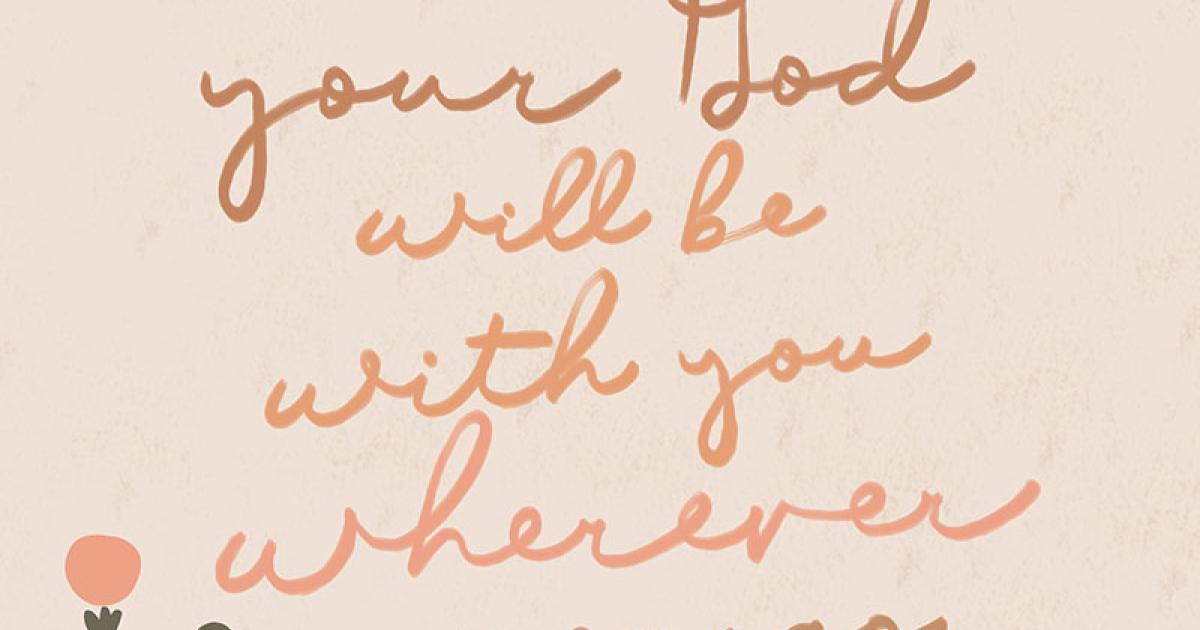 your God
will be
with you
wherever